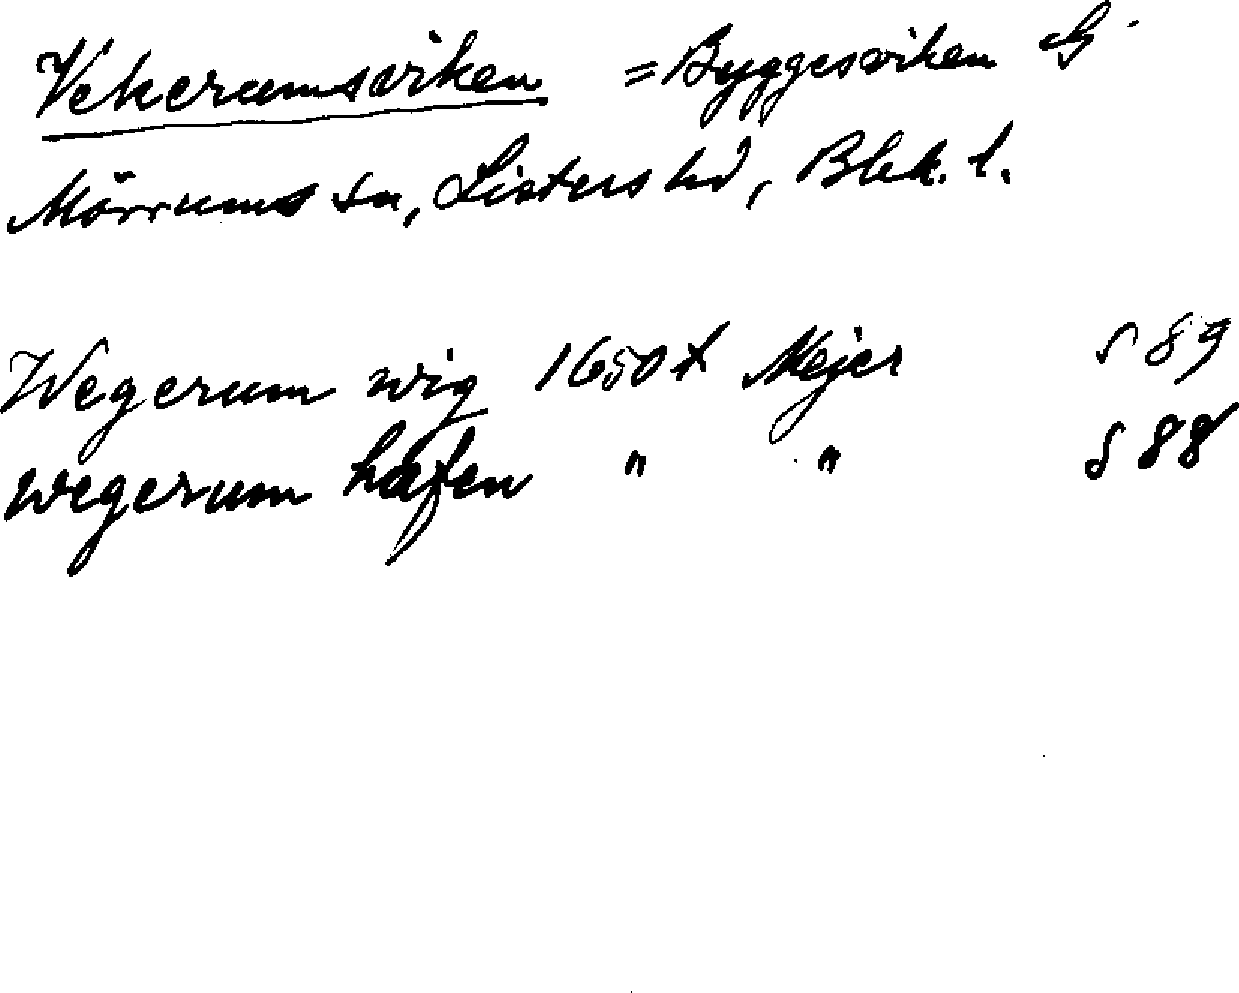 Vekerumsviken = Byggesviken G
Mörrums sn, Listers hd, Blek. l.
Wegerum wig 1650 t Mejer s 89
Wegerum hafen " " s 88